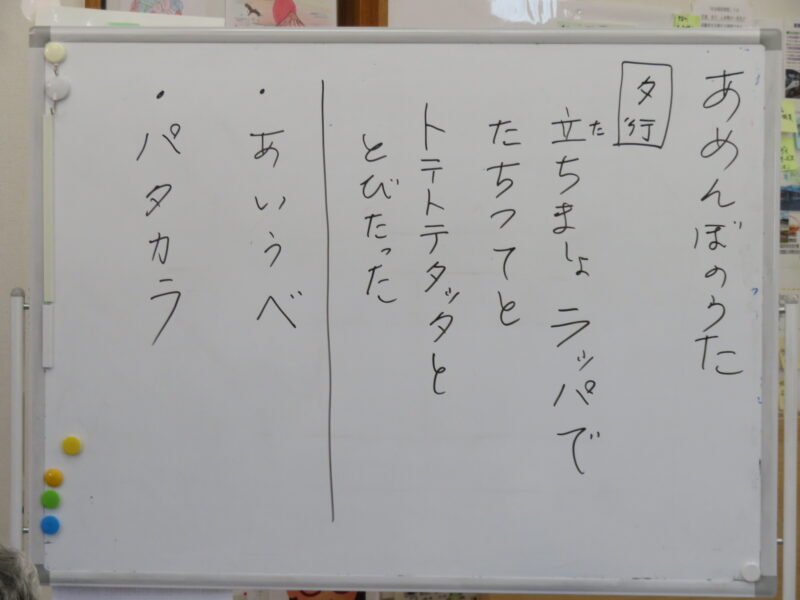 あめんぼのうた
タ行
立ちましょラッパで
た
たちつてと
トテトテタッタと
とびたった
・あいうべ
・パタカラ